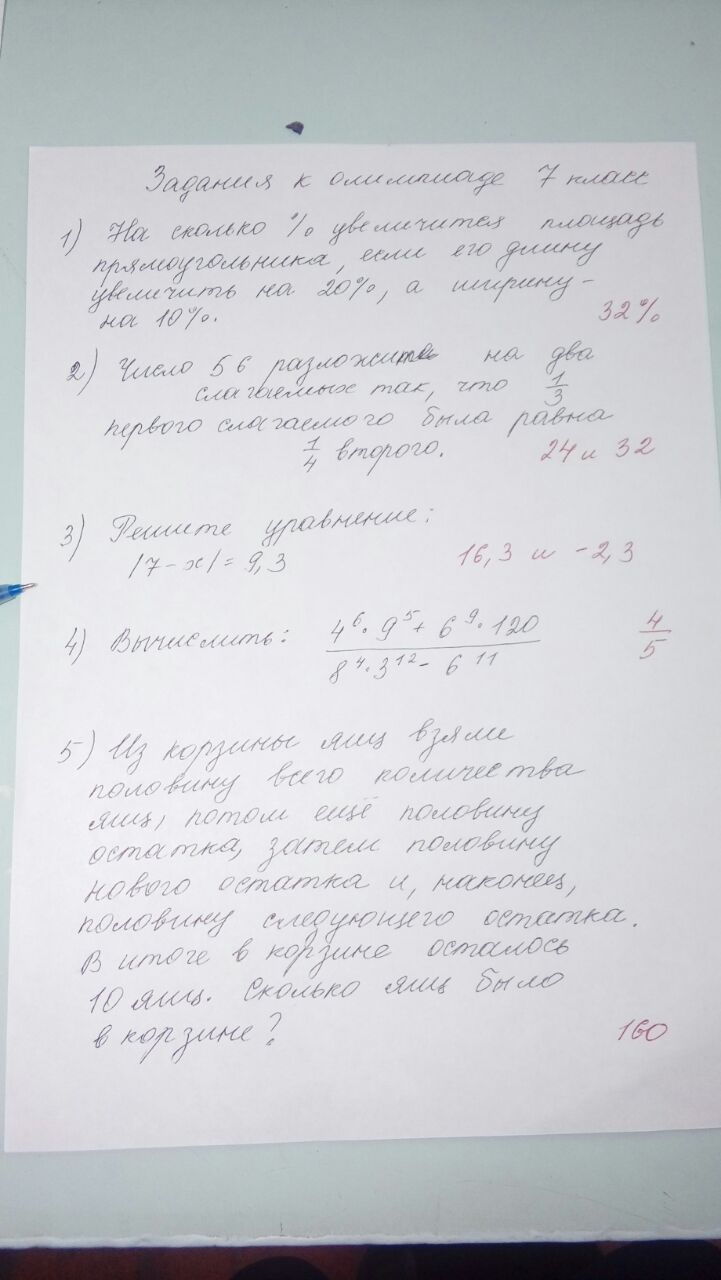 Задания к олимпиаде 7 класс
1) На сколько % увеличится площадь
прямоугольника, если его длину
увеличить на 20%, а ширину -
на 10%. 32%
2) Число 56 разложите на два
слагаемых так, что 1/3
первого слагаемого была равна
1/4 второго. 24 и 32
3) Решите уравнение:
|7-x| = 9,3 16,3 и -2,3
4) Вычислить: (4⁶·9⁵ + 6⁹·120)/(8⁴·3¹² - 6¹¹) 4/5
5) Из корзины яиц взяли
половину всего количества
яиц, потом ещё половину
остатка, затем половину
нового остатка и, наконец,
половину следующего остатка.
В итоге в корзине осталось
10 яиц. Сколько яиц было
в корзине? 160